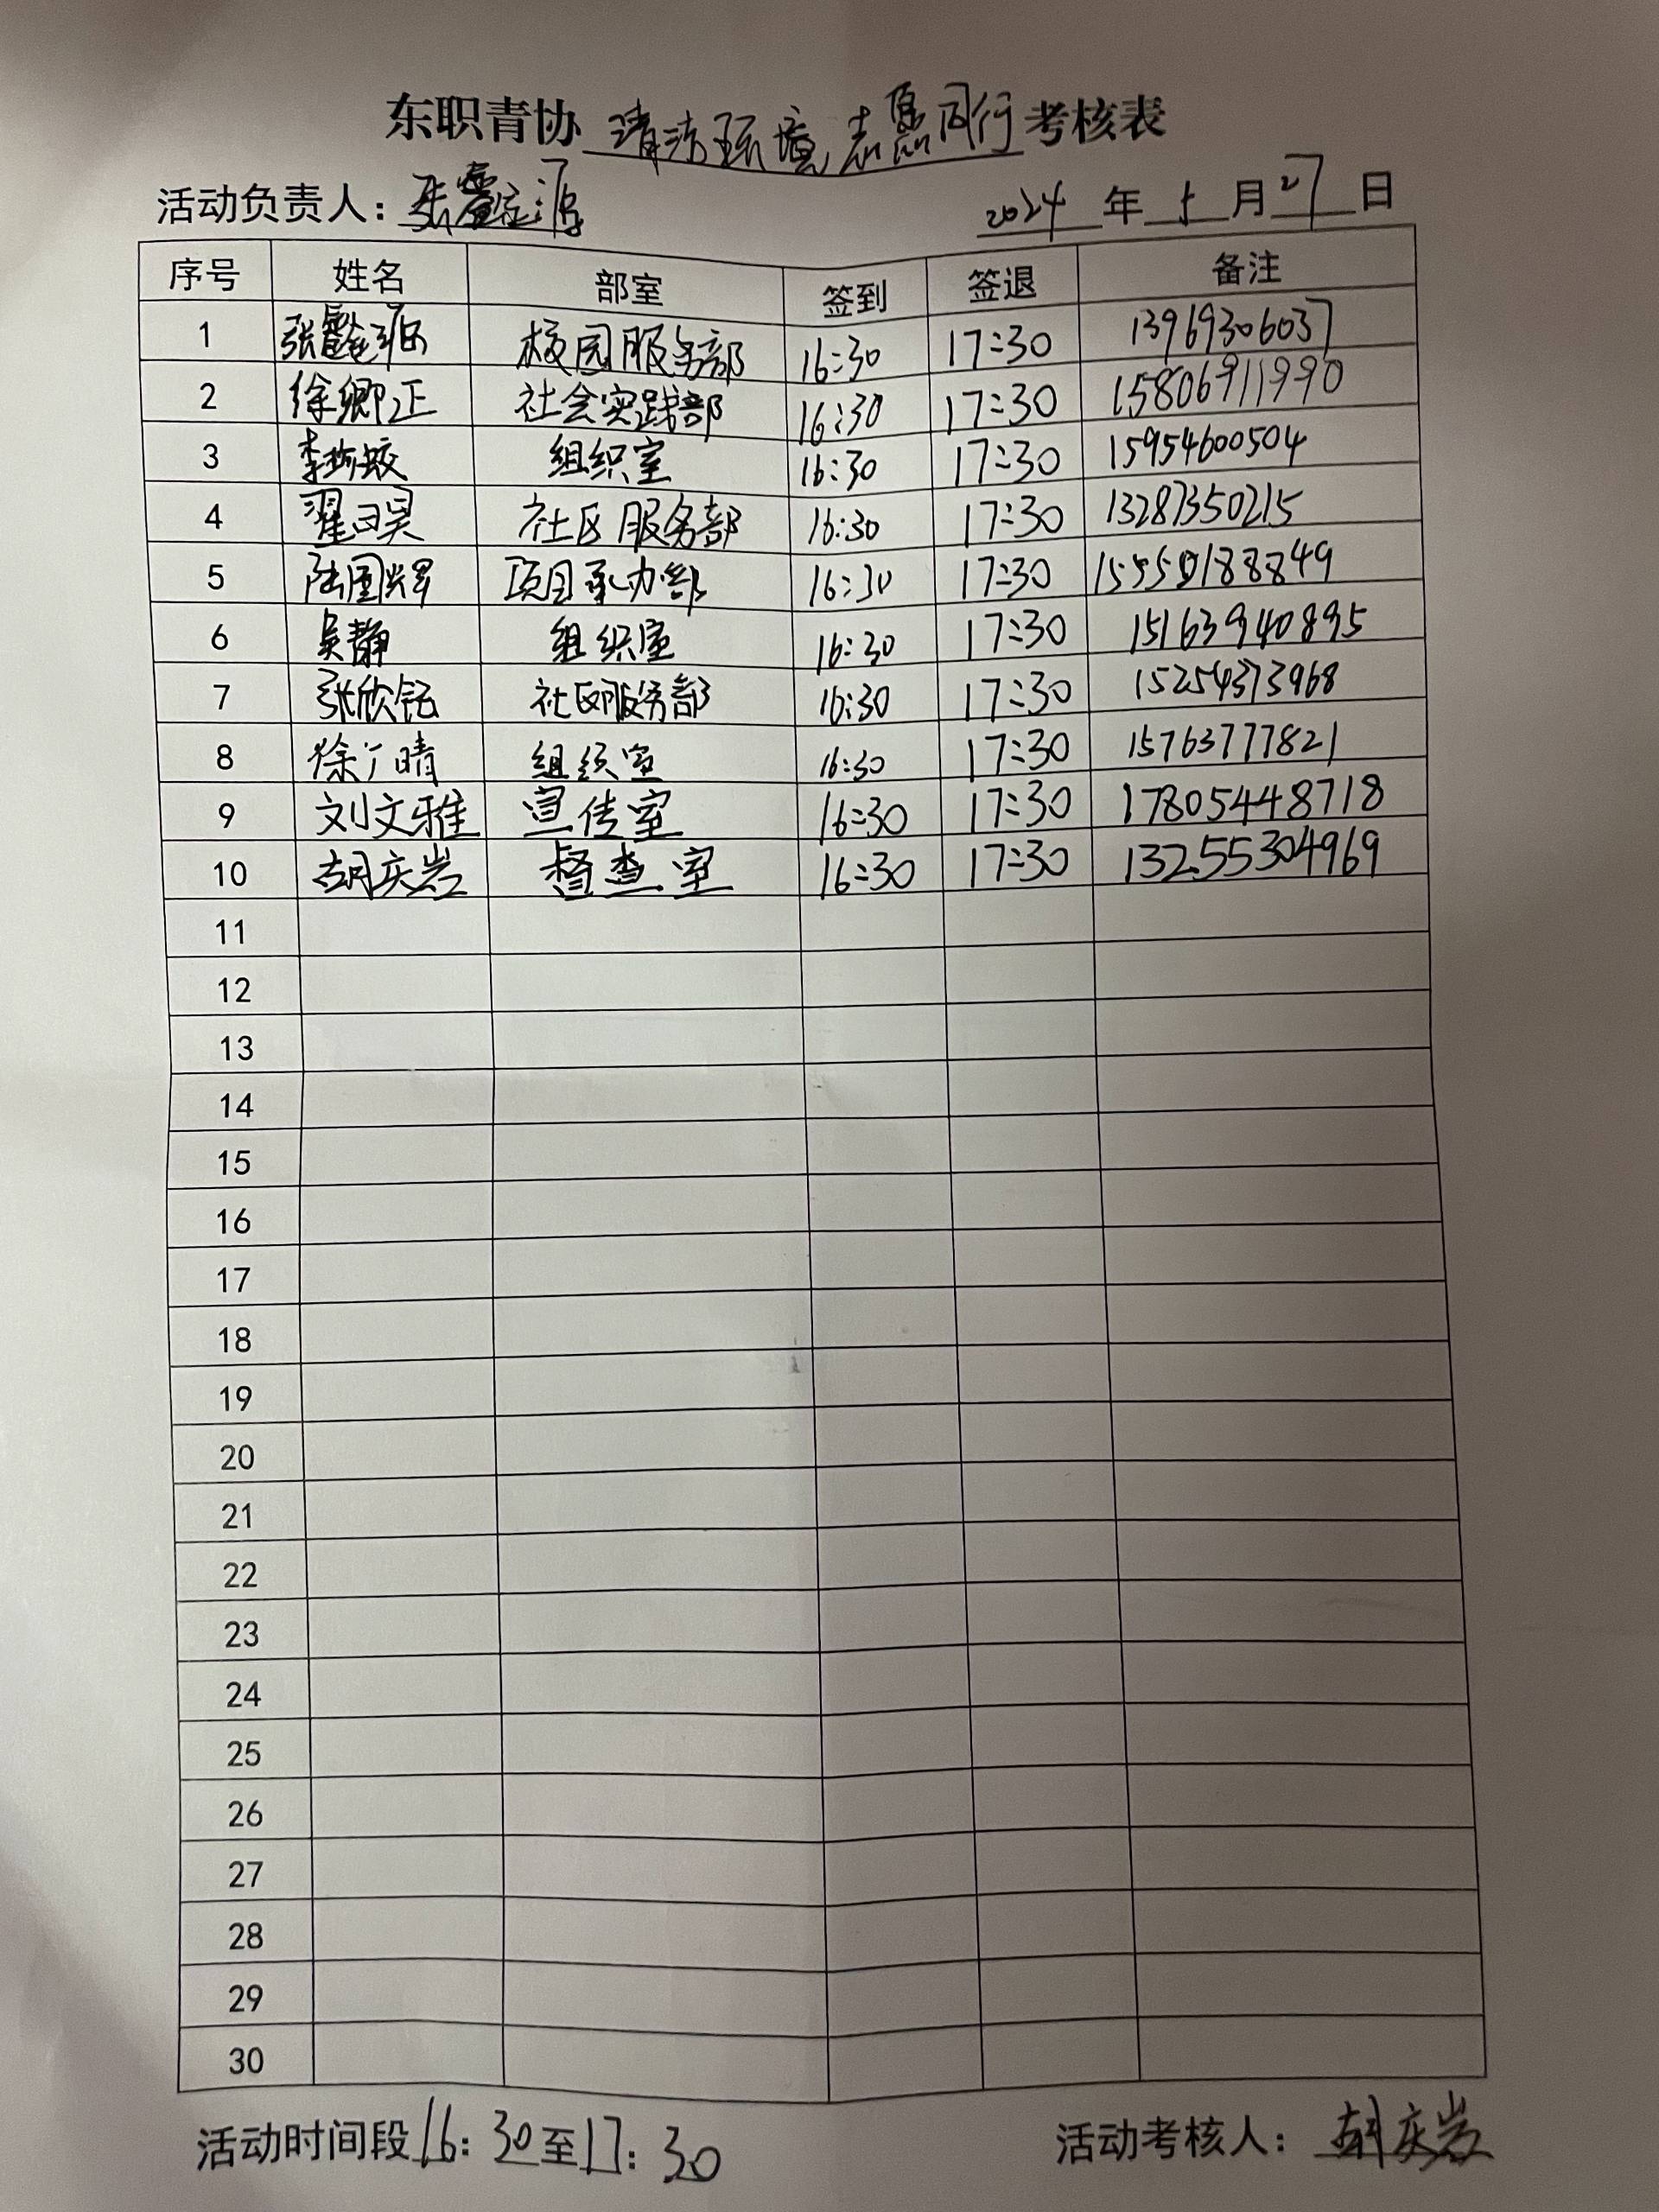 东职青协 清洁环境 志愿同行 考核表
活动负责人： 张 源 2024 年 5 月 27 日
序号 姓名 部室 签到 签退 备注
1 张 源 校园服务部 16:30 17:30 13969306037
2 徐卿正 社会实践部 16:30 17:30 15806911990
3 李 姣 组织室 16:30 17:30 15954600504
4 翟日昊 社区服务部 16:30 17:30 13287350215
5 陆国辉 项目承办部 16:30 17:30 188849
6 吴静 组织室 16:30 17:30 15163940895
7 张欣钰 社区服务部 16:30 17:30 15254373968
8 徐广晴 组织室 16:30 17:30 15763777821
9 刘文雅 宣传室 16:30 17:30 17805448718
10 胡庆岩 督查室 16:30 17:30 13255304969
11
12
13
14
15
16
17
18
19
20
21
22
23
24
25
26
27
28
29
30
活动时间段16：30至17：30 活动考核人： 胡庆岩